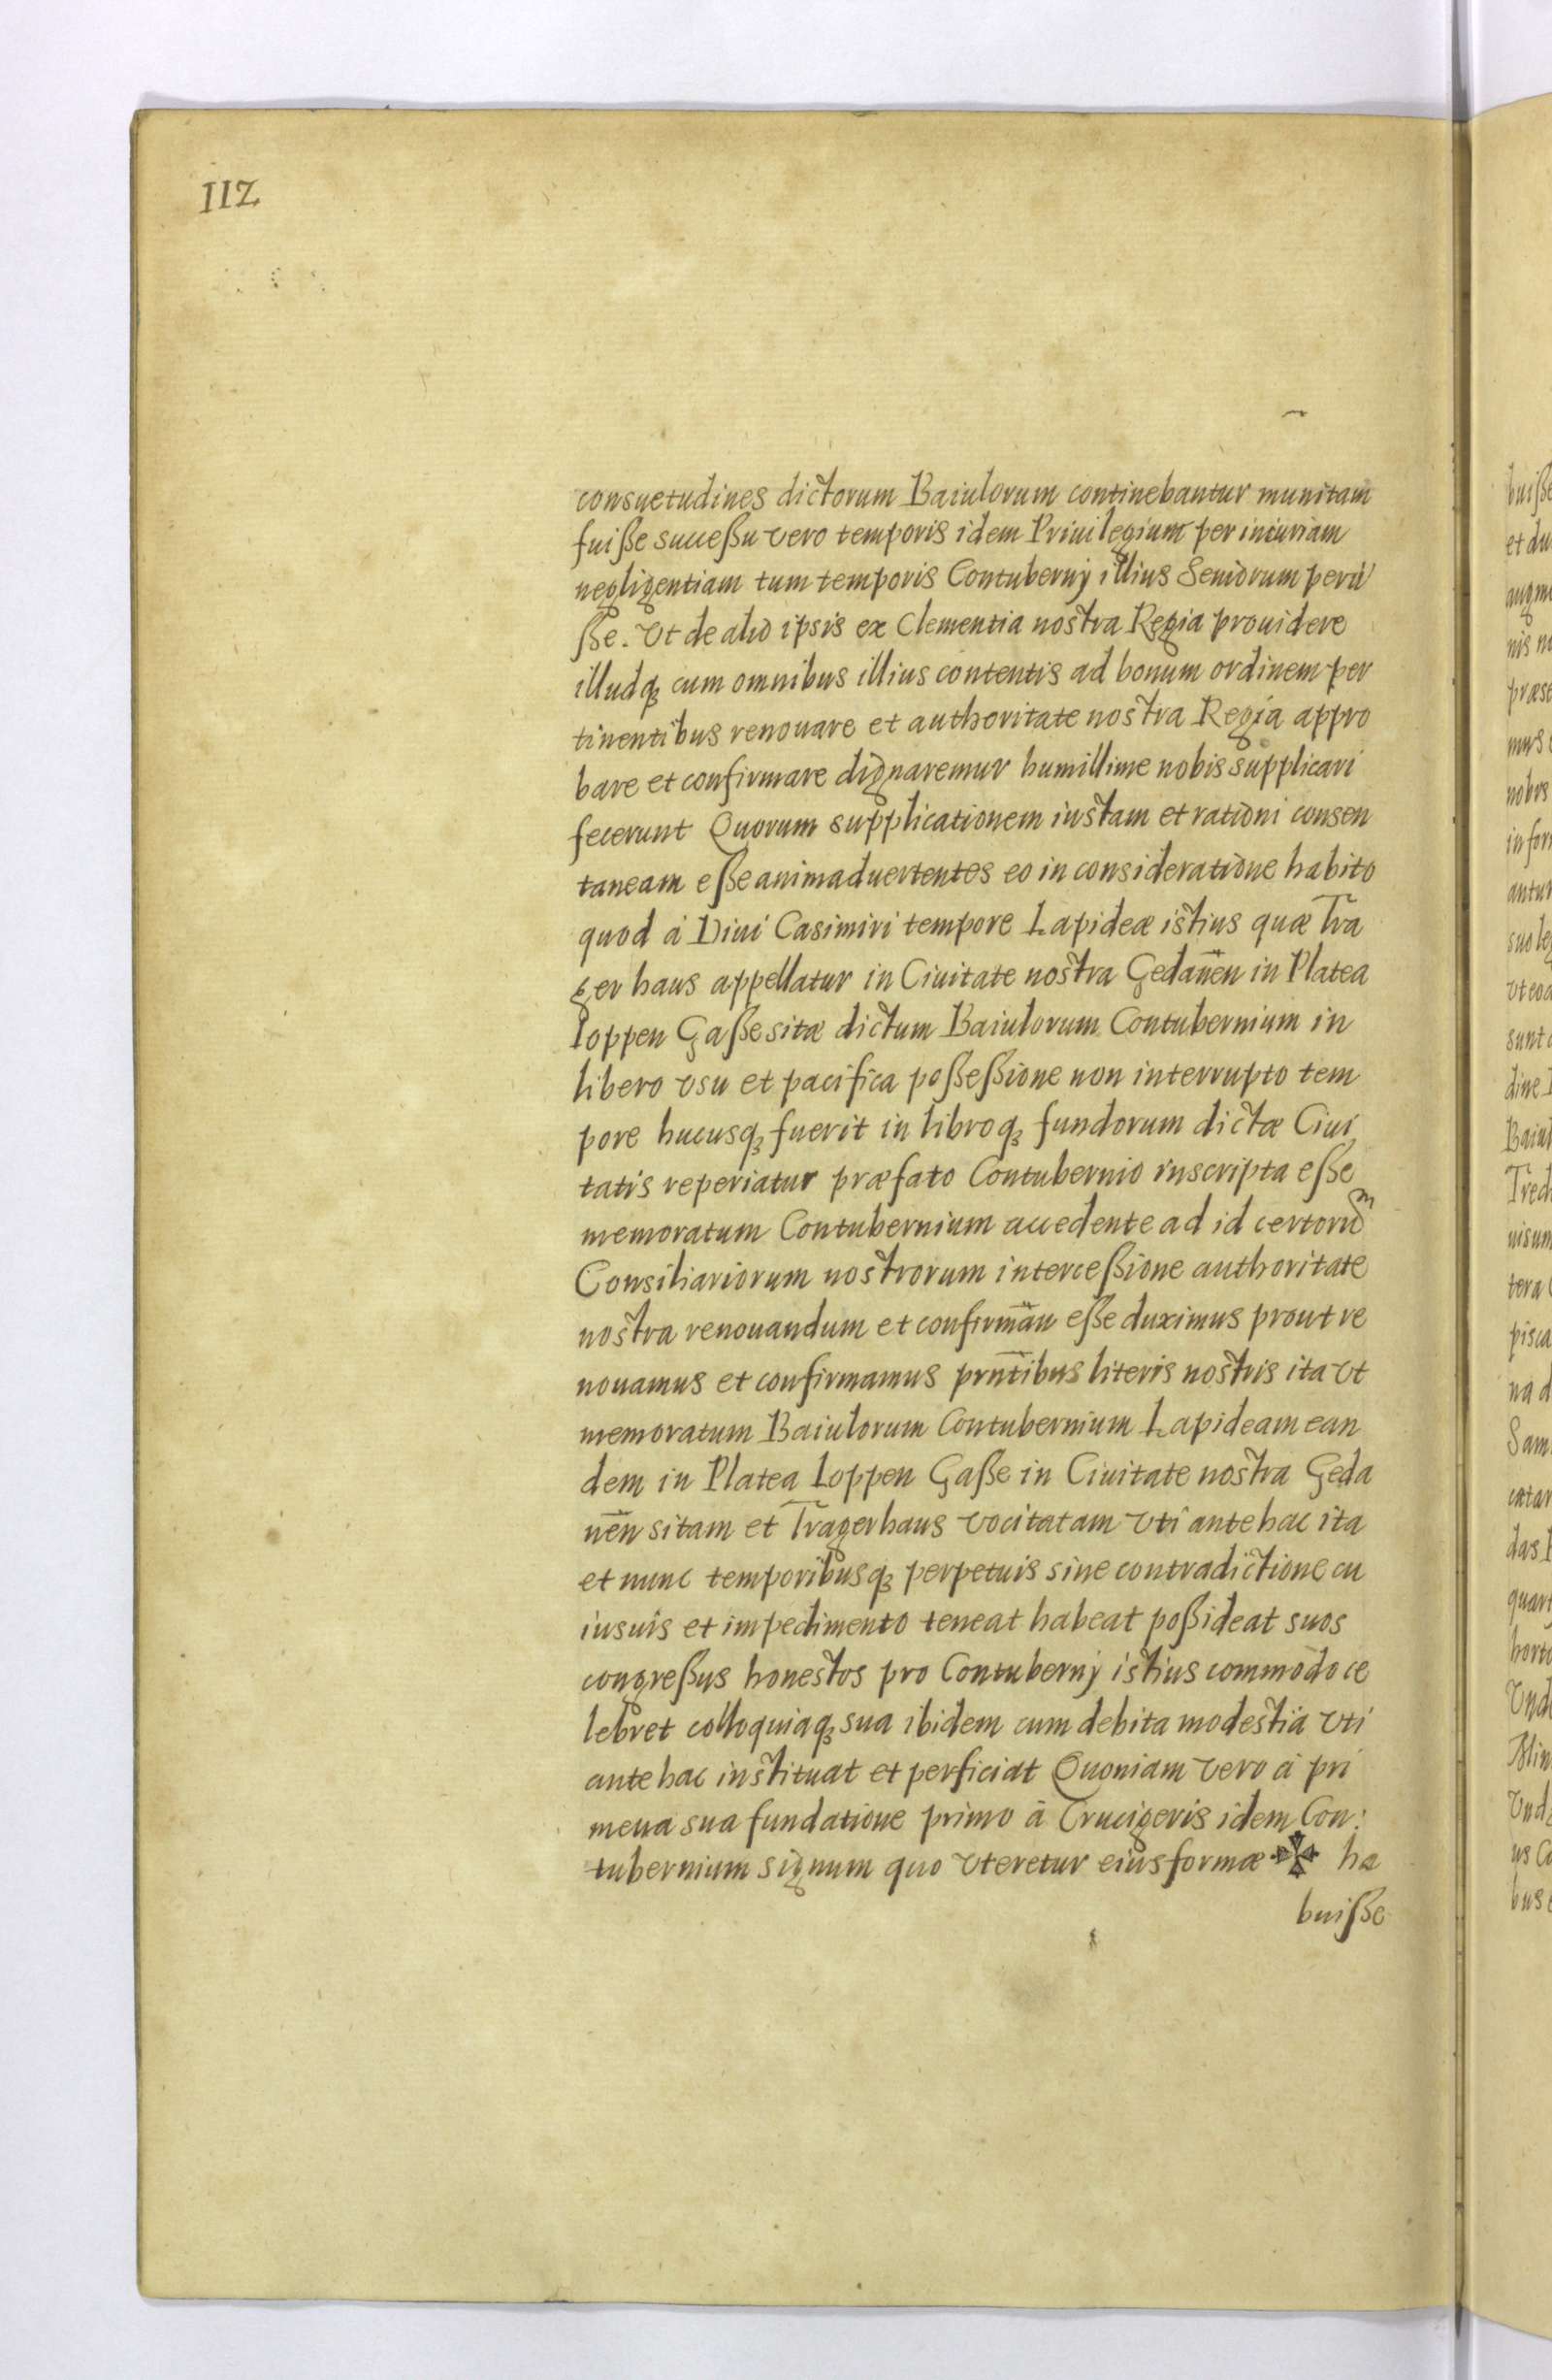 112
consuetudines dictorum Baiulorum continebantur munitam
fuiße succeßu vero temporis idem Priuilegium per incuriam
negligentiam tum temporis Contubernij illius Seniorum perii
ße. Vt de alio ipsis ex Clementia nostra Regia prouidere
illudq₃ cum omnibus illius contentis ad bonum ordinem per
tinentibus renouare et authoritate nostra Regia appro
bare et confirmare dignaremur humillime nobis supplicari
fecerunt Quorum supplicationem iustam et rationi consen
taneam eße animaduertentes eo in consideratione habito
quod à Diui Casimiri tempore Lapideæ istius quæ Tra
ger haus appellatur in Ciuitate nostra Gedanēn in Platea
Ioppen Gaße sitæ dictum Baiulorum Contubernium in
libero vsu et pacifica poßeßione non interrupto tem
pore hucusq₃ fuerit in libroq₃ fundorum dictæ Ciui
tatis reperiatur præfato Contubernio inscripta eße
memoratum Contubernium accedente ad id certoruᵐ
Consiliariorum nostrorum interceßione authoritate
nostra renouandum et confirmān eße duximus prout re
nouamus et confirmamus prn̄tibus literis nostris ita vt
memoratum Baiulorum Contubernium Lapideam ean
dem in Platea Ioppen Gaße in Ciuitate nostra Geda
nēn sitam et Tragerhaus vocitatam vti antehac ita
et nunc temporibusq₃ perpetuis sine contradictione cu
iusuis et impedimento teneat habeat poßideat suos
congreßus honestos pro Contubernij istius commodo ce
lebret colloquiaq₃ sua ibidem cum debita modestia vti
antehac instituat et perficiat Quoniam vero à pri
meua sua fundatione primo à Crucigeris idem Con:
tubernium signum quo vteretur eiusformæ ✠ ha
buiße